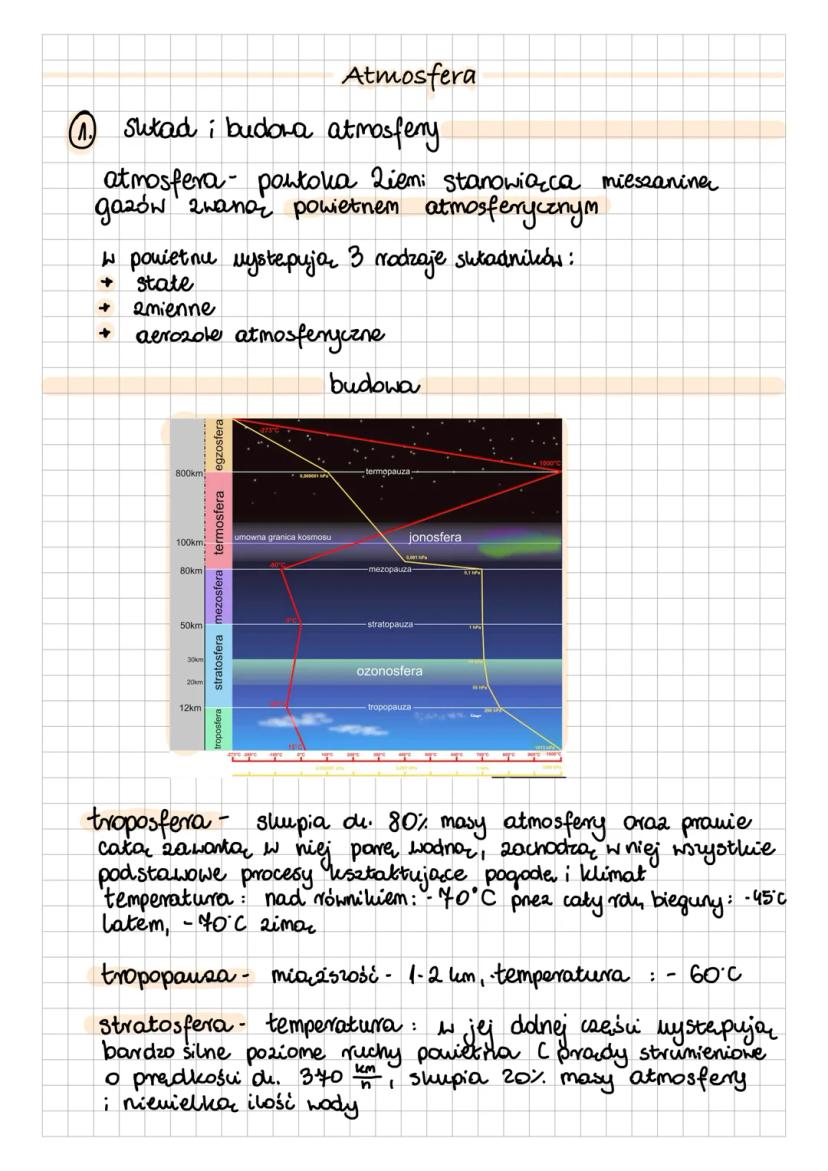 Atmosfera
1. skład i budowa atmosfery
atmosfera - powłoka Ziemi stanowiąca mieszaninę
gazów zwaną powietrzem atmosferycznym
w powietrzu występują 3 rodzaje składników:
+ stałe
+ zmienne
+ aerozole atmosferyczne
budowa
egzosfera
-273°C
1000°C
800km
termopauza
0,000001 hPa
termosfera
umowna granica kosmosu
jonosfera
100km
0,001 hPa
80km
-80°C
mezopauza
0,1 hPa
mezosfera
50km
0°C
stratopauza
1 hPa
stratosfera
30km
ozonosfera
20km
50 hPa
12km
tropopauza
200 hPa
troposfera
15°C
1013 hPa
-273°C -200°C -100°C 0°C 100°C 200°C 300°C 400°C 500°C 600°C 700°C 800°C 900°C 1000°C
troposfera - skupia ok. 80% masy atmosfery oraz prawie
całą zawartą w niej parę wodną, zachodzą w niej wszystkie
podstawowe procesy kształtujące pogodę i klimat
temperatura: nad równikiem: -70°C przez cały rok, bieguny: -45°C
latem, -70°C zimą
tropopauza - miąższość - 1-2 km, temperatura : - 60°C
stratosfera - temperatura: w jej dolnej części występują
bardzo silne poziome ruchy powietrza ( prądy strumieniowe
o prędkości ok. 370 km/h, skupia 20% masy atmosfery
i niewielką ilość wody